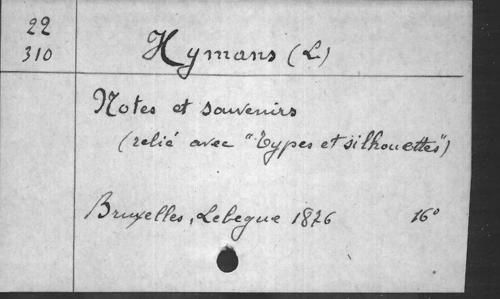 22
310
Hymans (L)
Notes et souvenirs
(relié avec "Types et silhouettes")
Bruxelles, Lebegue 1876 16°